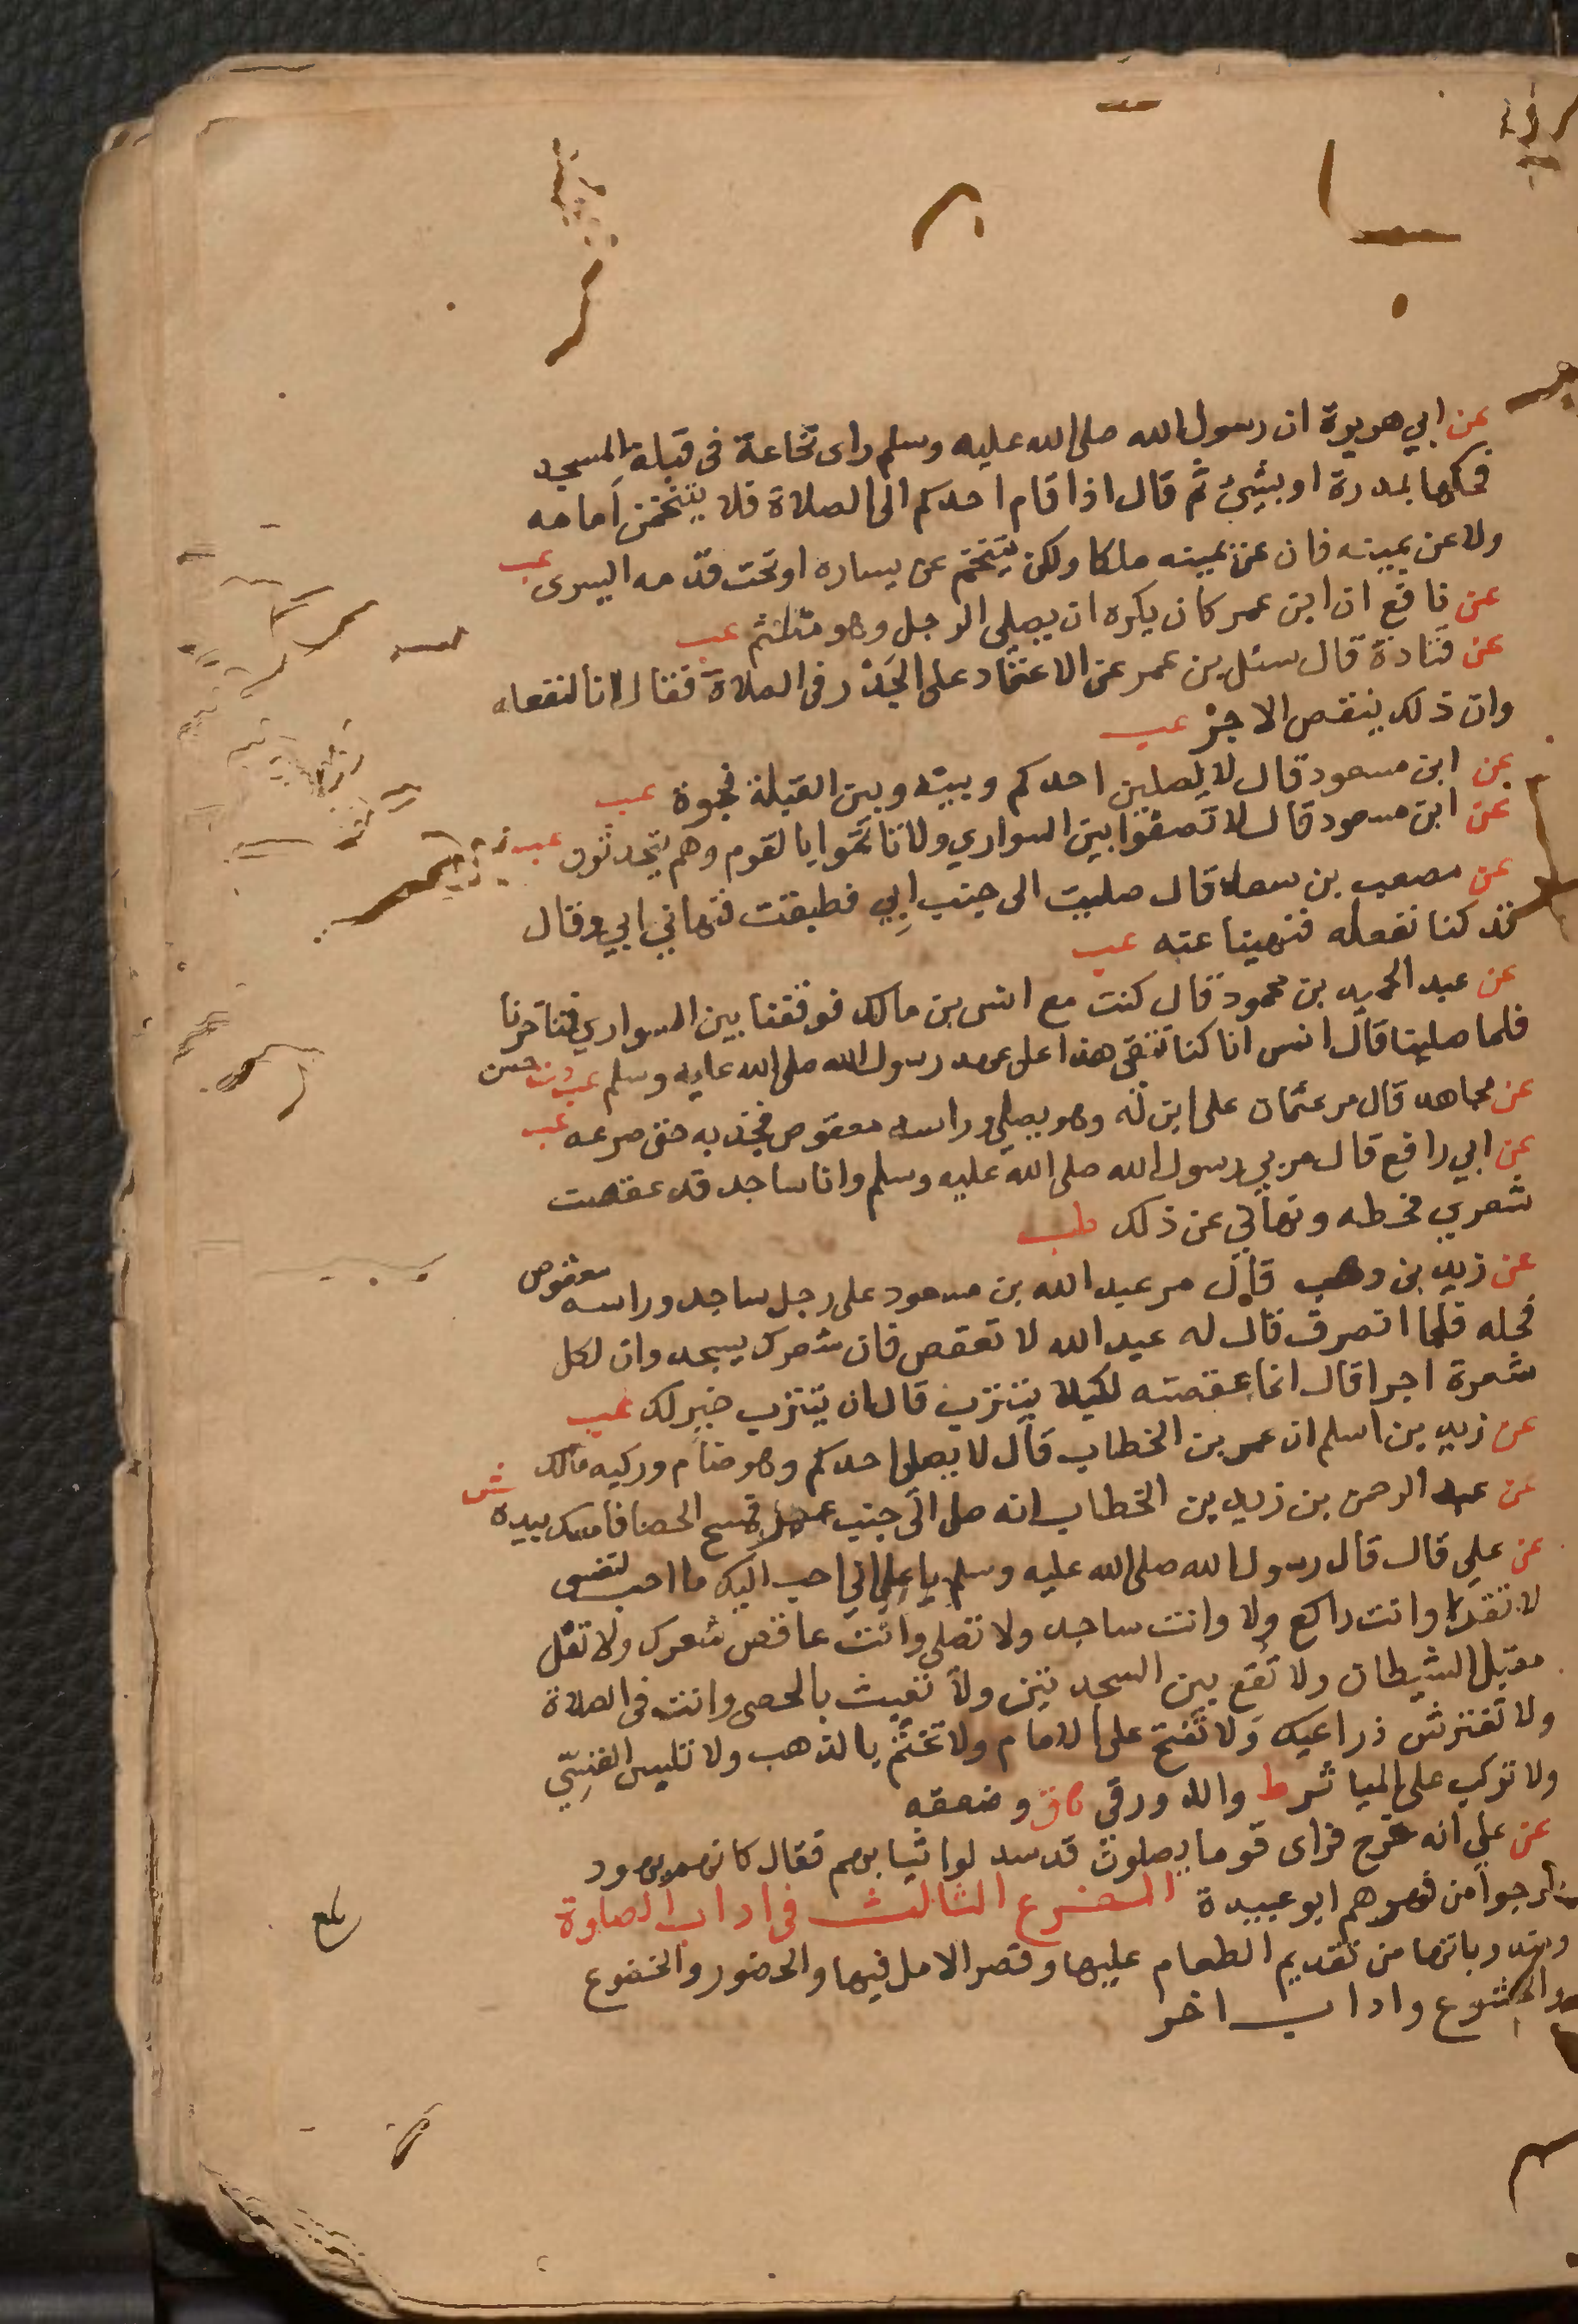 عن ابي هريرة ان رسول الله صلى الله عليه وسلم راى نخاعة في قبلة المسجد
فحكها بمدرة او بشيئ ثم قال اذا قام احدكم الى الصلاة فلا يتنخمن اَمامه
ولا عن يمينه فان عن يمينه ملكا ولكن يتنخم عن يساره او تحت قدمه اليسرى عب
عن نافع ان ابن عمر كان يكره ان يصلي الرجل وهو متلثم عب
عن قتادة قال سئل بن عمر عن الاعتماد على الجَدْر في الصلاة فقال انا لنفعله
وان ذلك ينقص الاجرْ عب
عن ابن مسعود قال لا يصلين احدكم وبينه وبين القبلة فجوة عب
عن ابن مسعود قال لا تصفوا بين السواري ولا تاتموا بالقوم وهم يتحدثون عب
عن مصعب بن سعد قال صليت الى جنب ابي فطبقت فنهاني ابي وقال
قد كنا نفعله فنهينا عنه عب
عن عبد الحميد بن محمود قال كنت مع انس بن مالك فوقفنا بين السواري فتاخرنا
فلما صلينا قال انس انا كنا نتقى هذا على عهد رسول الله صلى الله عليه وسلم عب دت حسن
عن مجاهد قال مر عثمان على ابن له وهو يصلي وراسه معقوص فجذبه حتى صرعه عب
عن ابي رافع قال مر بي رسول الله صلى الله عليه وسلم وانا ساجد قد عقصت
شعري فحطه ونهاني عن ذلك طب
عن زيد بن وهب قال مر عبد الله بن مسعود على رجل ساجد وراسه معقوص
فحله فلما انصرف قال له عبد الله لا تعقص فان شعرك يسجد وان لكل
شعرة اجرا قال انما عقصته لكيلا يتترب قال ان يتترب خير لك عب
عن زيد بن اسلم ان عمر بن الخطاب قال لا يصلي احدكم وهو ضام وركيه مالك
عن عبد الرحمن بن زيد بن الخطاب انه صلى الى جنب عمر فمسح الحصا فامسك بيده ش
عن علي قال قال رسول الله صلى الله عليه وسلم يا علي اني احب اليك ما احب لنفسى
لا تقرا وانت راكع ولا وانت ساجد ولا تصلي وانت عاقص شعرك ولا تقل
مقيل الشيطان ولا تُقع بين السجدتين ولا تعبث بالحصى وانت في الصلاة
ولا تفترش ذراعيك وَلا تَفتح على الامام ولا تختّم بالذهب ولا تلبس القسِيّ
ولا تركب على المياثر ط والدورقي ق وضعفه
عن علي انه خرج فراى قوما يصلون قد سدلوا ثيابهم فقال كانهم يهود
خرجوا من فهرهم ابو عبيدة الفرع الثالث في اداب الصلوة
من تقديم الطعام عليها وقصر الامل فيها والحضور والخضوع
الخشوع واداب اخر
بلغ